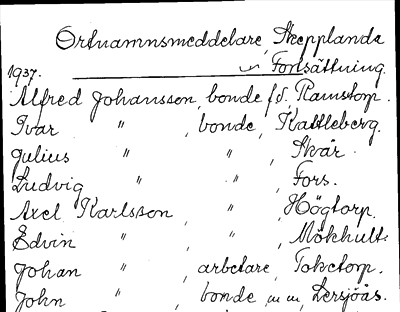 Ortnamnsmeddelare, Skepplanda
Fortsättning.
1937.
Alfred Johansson, bonde, f.d., Ramstorp.
Ivar " , bonde, Kattleberg.
Julius " , " , Skår.
Ludvig " , " , Fors.
Axel Karlsson , " , Högtorp.
Edvin " , " , Mökhult.
Johan " , arbetare, Toketorp.
John " , bonde, m m, Lersjöås.